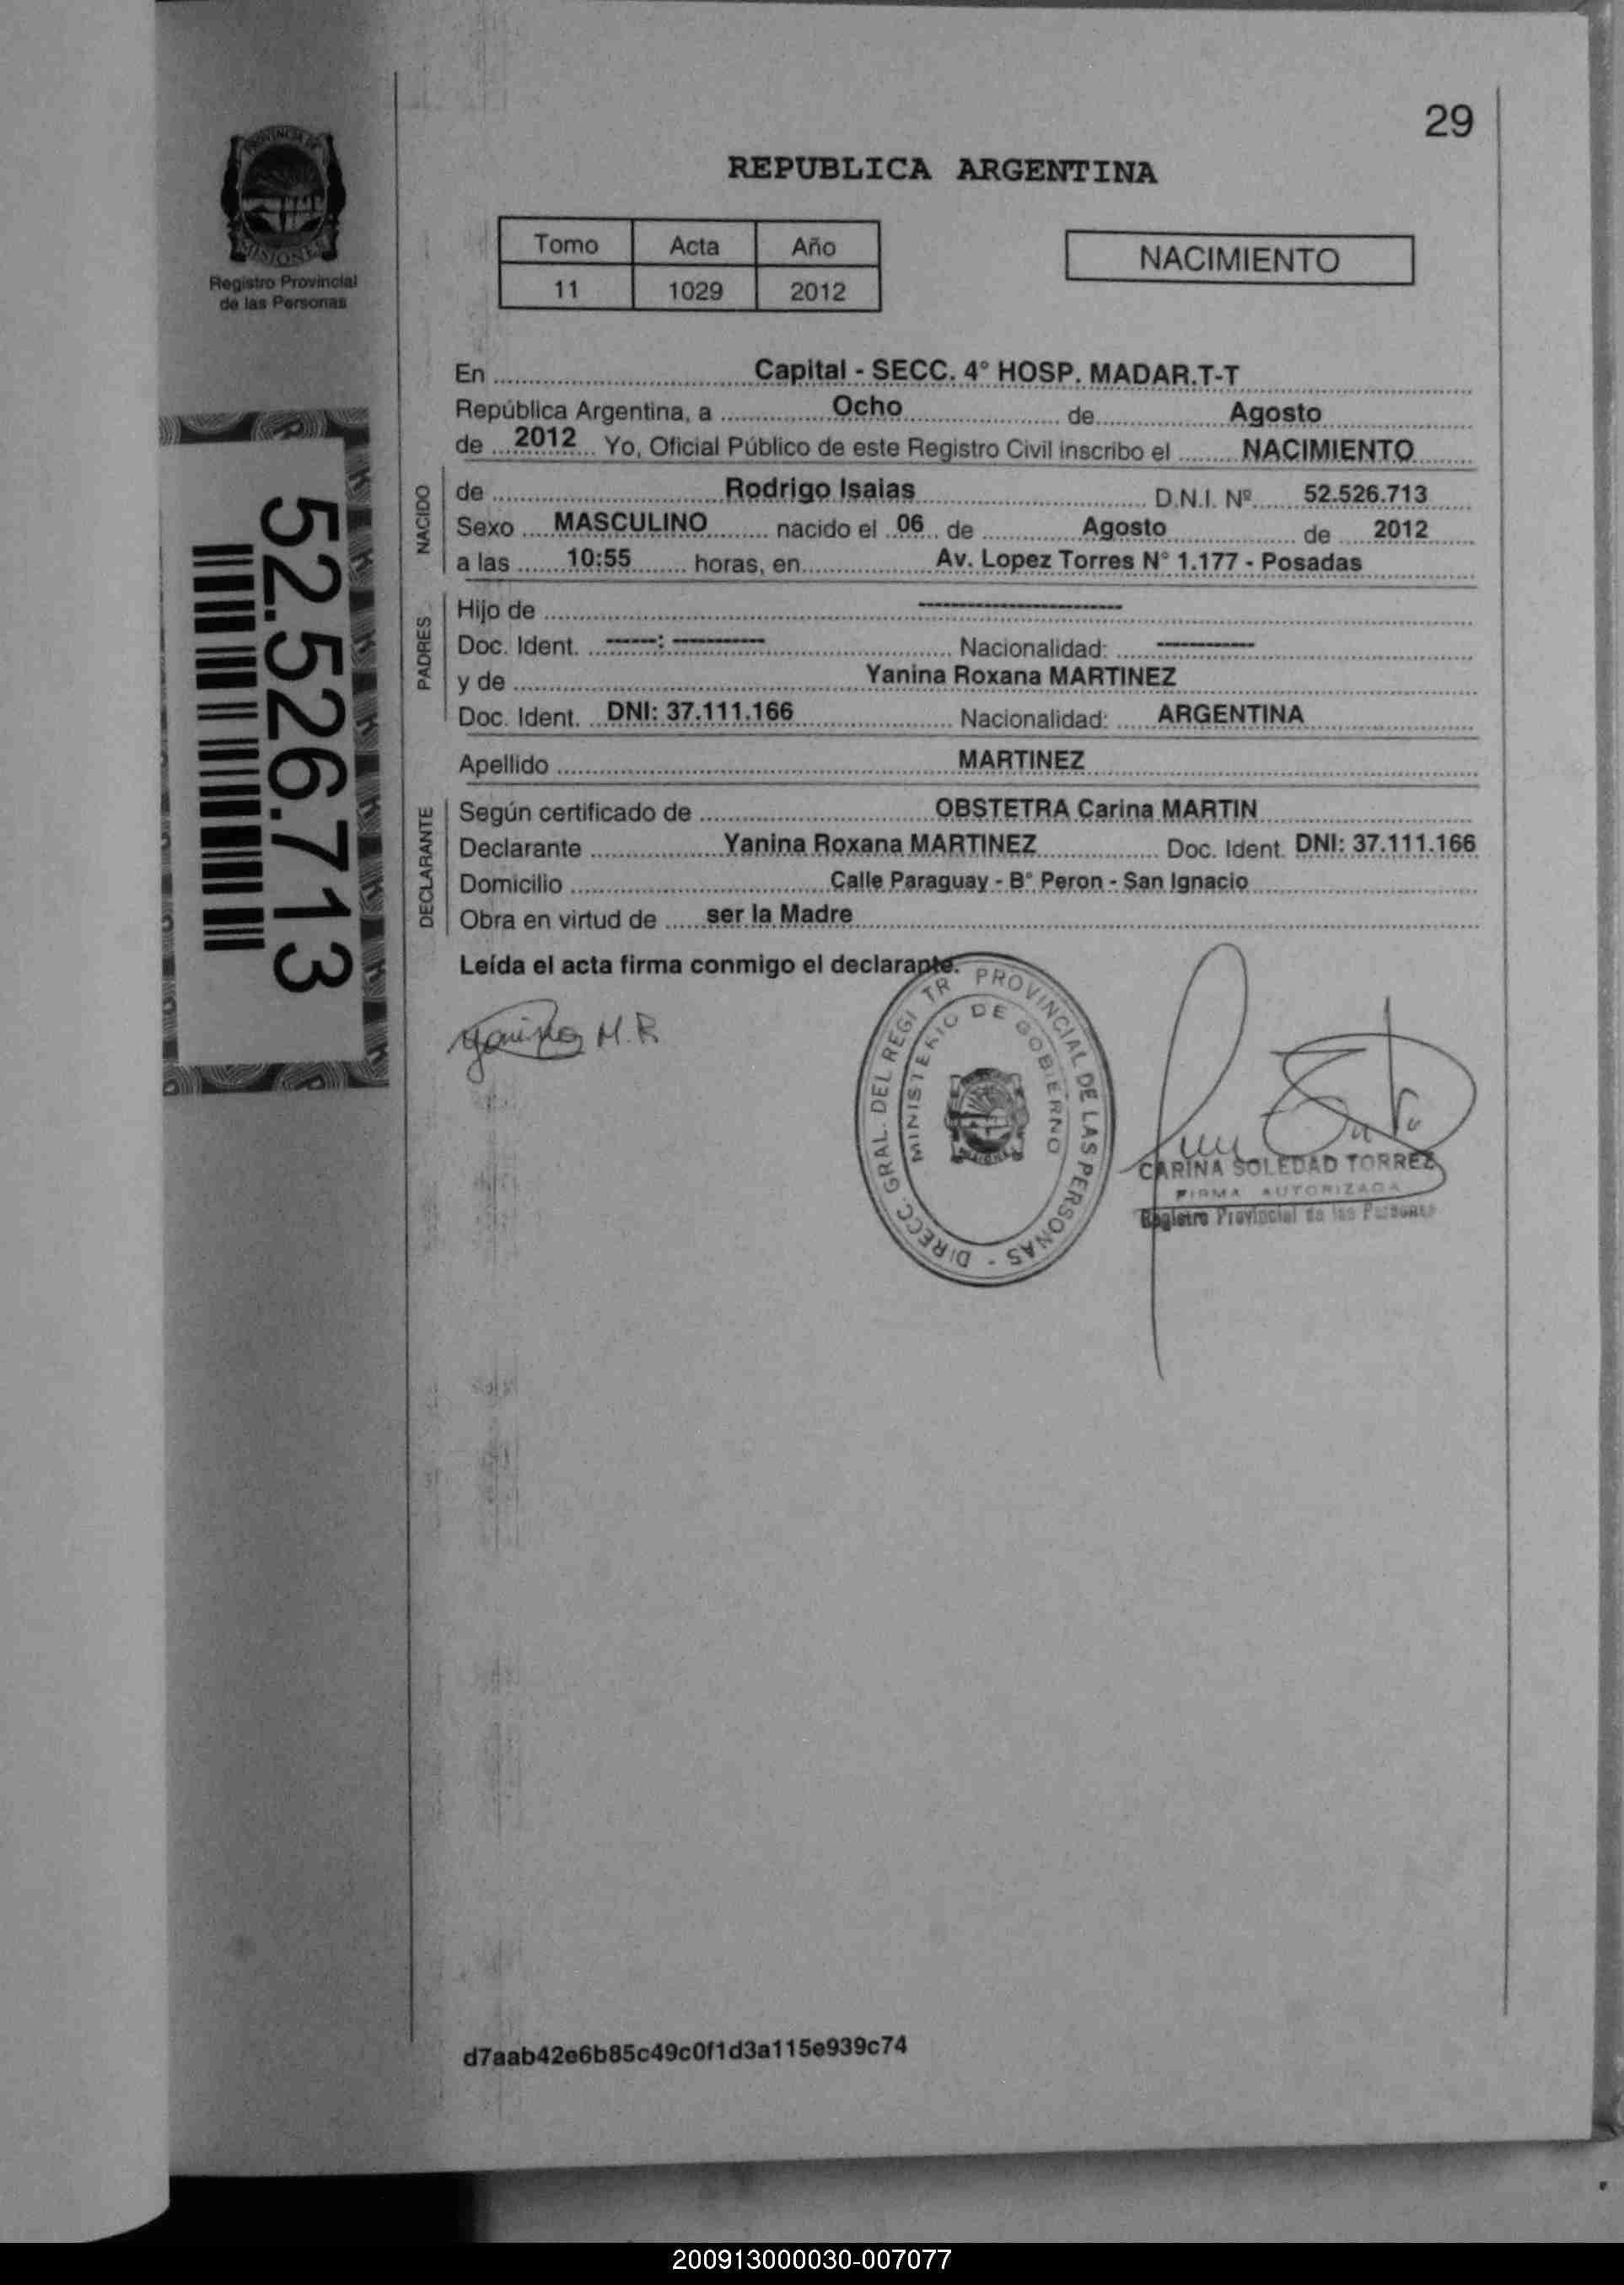 29
REPUBLICA ARGENTINA
PROVINCIA DE
MISIONES
Registro Provincial
de las Personas
Tomo Acta Año
11 1029 2012
NACIMIENTO
En Capital - SECC. 4° HOSP. MADAR.T-T
República Argentina, a Ocho de Agosto
de 2012 Yo, Oficial Público de este Registro Civil inscribo el NACIMIENTO
NACIDO
de Rodrigo Isaias D.N.I. Nº 52.526.713
Sexo MASCULINO nacido el 06 de Agosto de 2012
a las 10:55 horas, en Av. Lopez Torres N° 1.177 - Posadas
PADRES
Hijo de --------------------
Doc. Ident. -----: --------- Nacionalidad: ----------
y de Yanina Roxana MARTINEZ
Doc. Ident. DNI: 37.111.166 Nacionalidad: ARGENTINA
Apellido MARTINEZ
DECLARANTE
Según certificado de OBSTETRA Carina MARTIN
Declarante Yanina Roxana MARTINEZ Doc. Ident. DNI: 37.111.166
Domicilio Calle Paraguay - B° Peron - San Ignacio
Obra en virtud de ser la Madre
Leída el acta firma conmigo el declarante.
52.526.713
M.R
DIRECC. GRAL. DEL REGI TR PROVINCIAL DE LAS PERSONAS -
MINISTERIO DE GOBIERNO
CARINA SOLEDAD TORREZ
FIRMA AUTORIZADA
Registro Provincial de las Personas
d7aab42e6b85c49c0f1d3a115e939c74
200913000030-007077